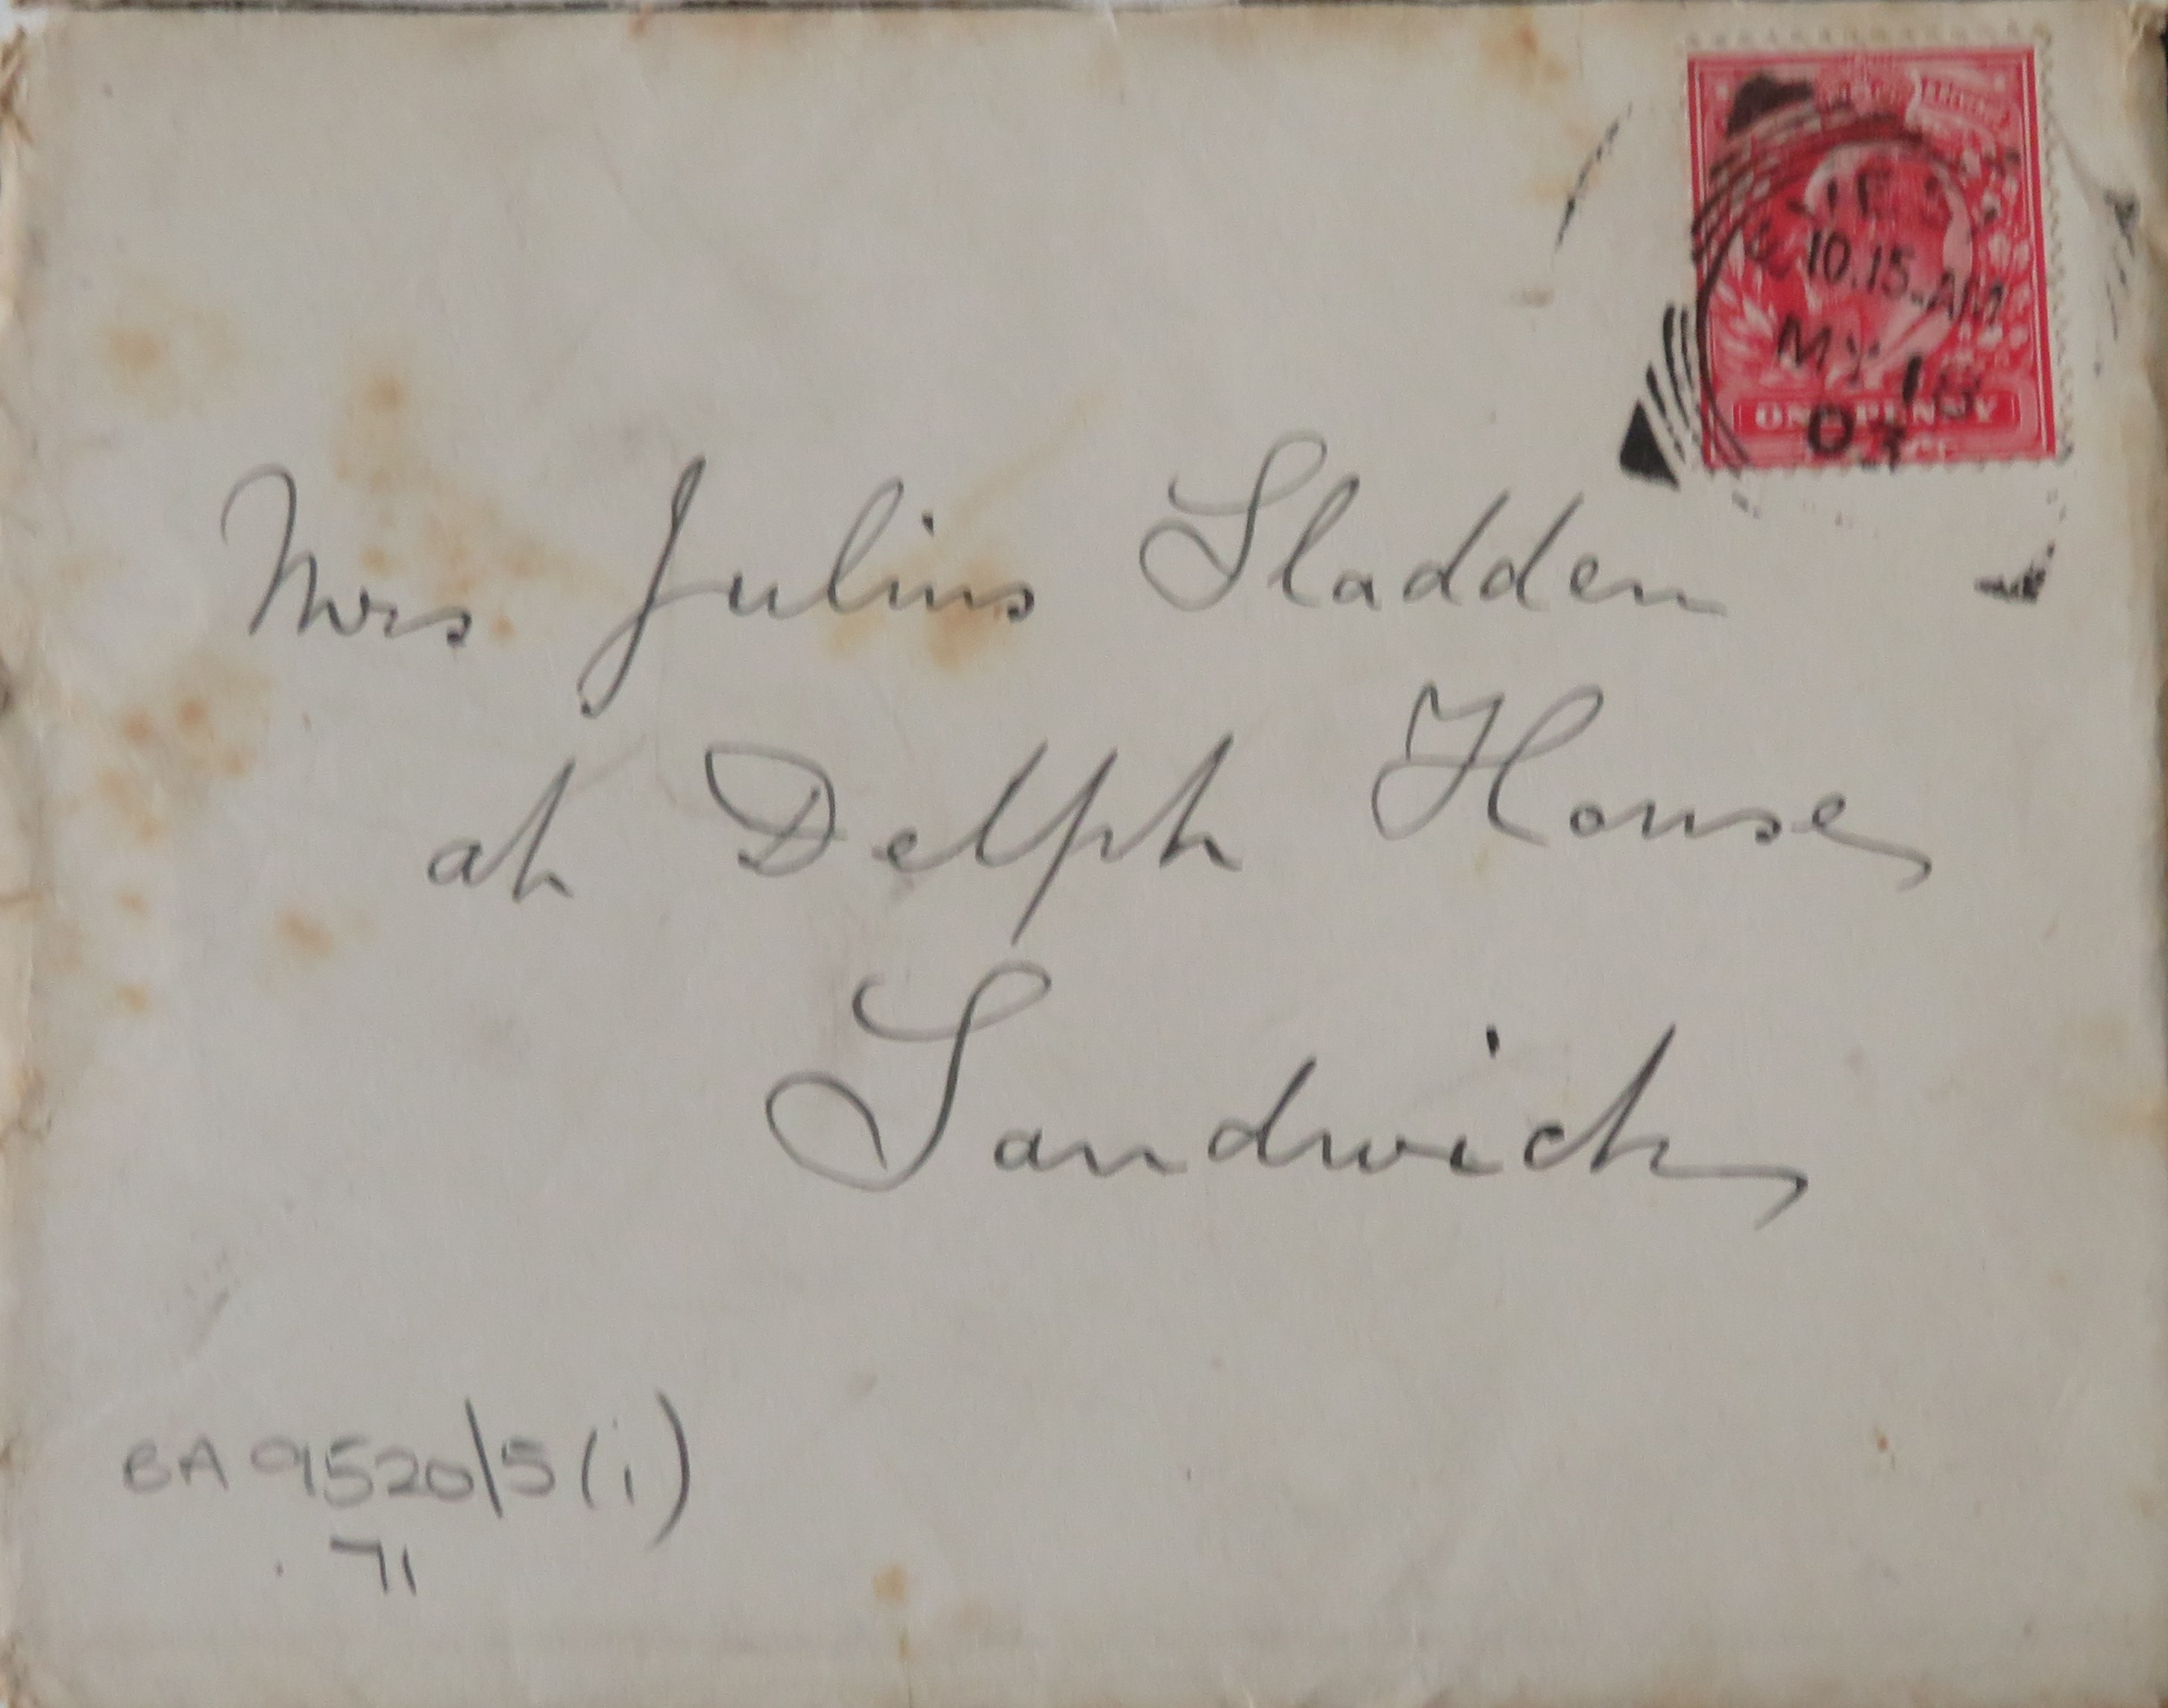 10.15 AM
MY 18
03
ONE PENNY
Mrs Julius Sladden
at Delph House
Sandwich
BA 9520\5(i)
.71